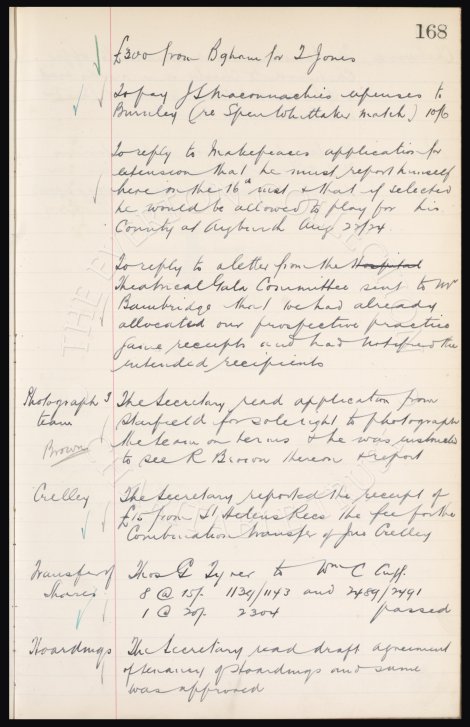 168
£300 from B'gham for T Jones
To pay J S Maconnachies expenses to
Burnley (re Spen Whittaker match) 10/6
To reply to Makepeaces application for
extension that he must report himself
here on the 16th inst & that if selected
he would be allowed to play for his
County at Aigburth Aug 22/24
To reply to a letter from the Hospital
Theatrical Gala Committee sent to Mr
Bainbridge that we had already
allocated our prospective practice
game receipts and had notified the
intended recipients
Photograph g The Secretary read application from
team Starfield for sole right to photograph
the team on terms & he was instructed
Brown to see R Brown thereon & report
Crelley The Secretary reported the receipt of
£15 from St Helens Recs the fee for the
Combination transfer of Jas Crelley
Transfer of Thos G Tyrer to Wm C Cuff
Shares 8 @ 15/- 1136/1143 and 2489/2491
1 @ 20/- 2304 passed
Hoardings The Secretary read draft agreement
of tenancy of Hoardings and same
was approved